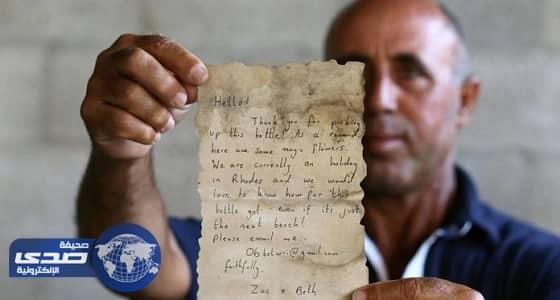 Hello!
Thank you for picking
up this bottle! As a reward
here are some magic flowers.
We are currently on holiday
in Rhodes and we would
love to know how far this
bottle got - even if its just
the next beach!
Please email me.
@gmail.com
faithfully.
Zac + Beth
صحيفة
صدى
الإلكترونية